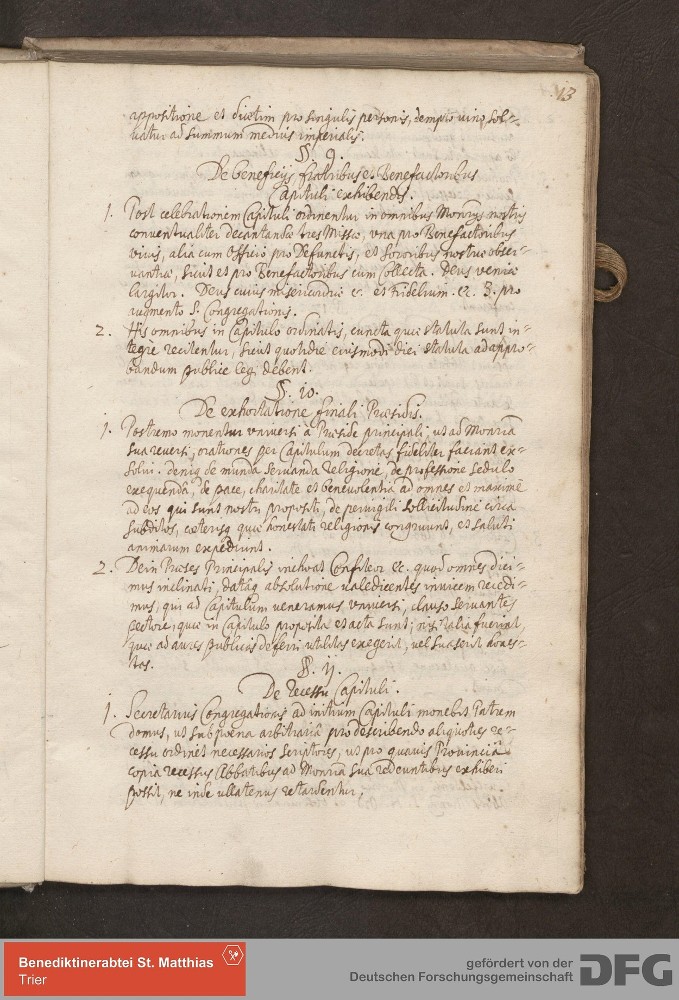 13
appositione et diætim pro singulis personis, dempto vino, sol-
vatur ad summum medius imperialis.
§. 9.
De beneficijs fratribus et Benefactoribus
Capituli exhibendis.
1. Post celebrationem Capituli ordinentur in omnibus Monrijs nostris
conventualiter decantandæ tres Missæ, vna pro Benefactoribus
vivis, alia cum Officio pro Defunctis, et Sororibus nostræ obser-
vantiæ, sicut et pro Benefactoribus cum Collecta. Deus veniæ
largitor. Deus cuius misericordiæ &. et Fidelium. &. 3. pro
augmento S. Congregationis.
2. His omnibus in Capitulo ordinatis, cuncta quæ statuta sunt in-
tegrè recitentur, sicut quotidiè eiusmodi diei statuta ad appro-
bandum publicè legi debent.
§. 10.
De exhortatione finali Præsidis.
1. Postremo monentur vniversi à Præside principali, ut ad Monria
sua reversi, orationes per Capitulum decretas fideliter faciant ex-
solvi. deniq de munda servanda religione, de professione sedulo
exequenda, de pace, charitate et benevolentia ad omnes et maximè
ad eos qui sunt nostri propositi, de pervigili sollicitudine circa
subditos, cæterisq quæ honestati religionis congruunt, et saluti
animarum expediunt.
2. Dein Præses Principalis inchoat Confiteor &c. quod omnes dici-
mus inclinati, datâq absolutione valedicentes invicem recedi-
mus, qui ad Capitulum veneramus vniversi, clauso servantes
pectore, quæ in Capitulo proposita et acta sunt; nisi talia fuerint,
quæ ad aures publicas deferri utilitas exegerit, vel suaserit hones-
tas.
§. 11.
De recessu Capituli.
1. Secretarius Congregationis ad initium Capituli monebit Patrem
domus, ut sub pœna arbitraria pro describendo aliquoties re-
cessu ordinet necessarios scriptores, ut pro quavis Provincia
copia recessus Abbatibus ad Monria sua redeuntibus exhiberi
possit, ne inde ullatenus retardentur.
Benediktinerabtei St. Matthias
Trier
gefördert von der
Deutschen Forschungsgemeinschaft
DFG